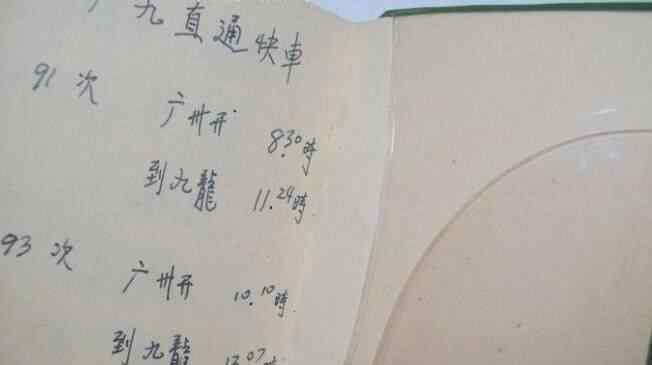 九直通快車
91次
广州开 8.30時
到九龍 11.24時
93次
广州开 10.10時
到九龍